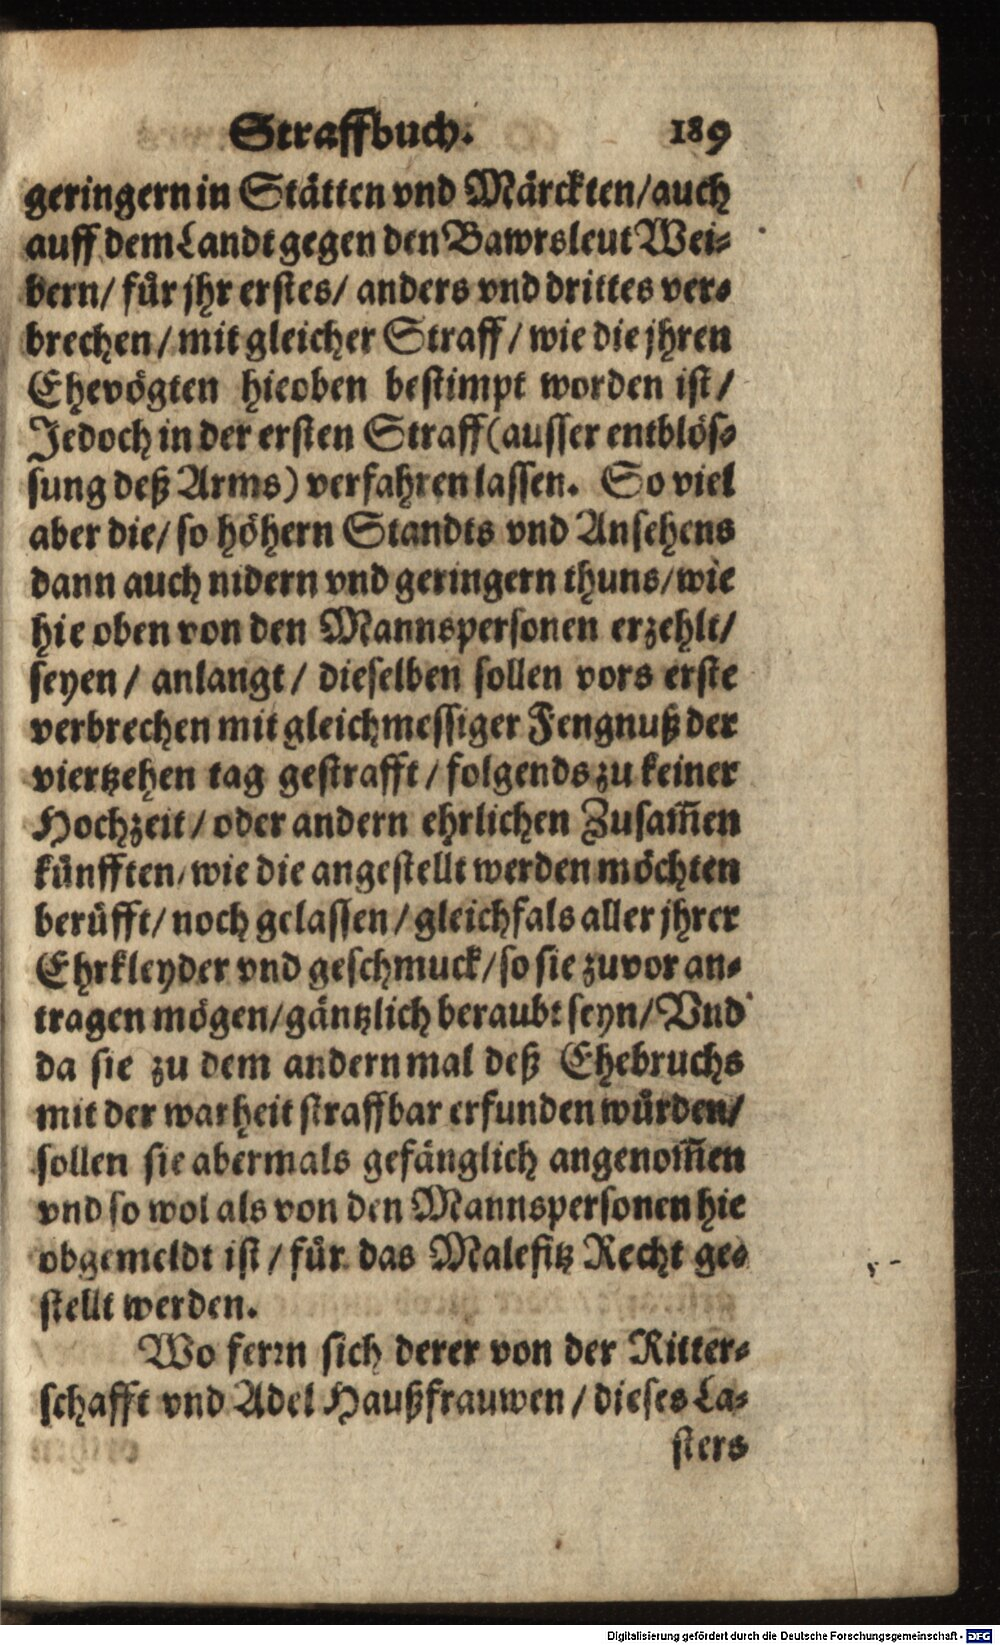 Straffbuch. 189
geringern in Stätten vnd Märckten/auch
auff dem Landt gegen den Bawrsleut Wei-
bern/ für jhr erstes/ anders vnd drittes ver-
brechen/mit gleicher Straff/ wie die jhren
Ehevögten hieoben bestimpt worden ist/
Jedoch in der ersten Straff(ausser entblös-
sung deß Arms) verfahren lassen. So viel
aber die/ so höhern Standts vnd Ansehens
dann auch nidern vnd geringern thuns/wie
hie oben von den Mannspersonen erzehlt/
seyen/ anlangt/ dieselben sollen vors erste
verbrechen mit gleichmessiger Fengnuß der
viertzehen tag gestrafft/folgends zu keiner
Hochzeit/oder andern ehrlichen Zusam̃en
künfften/wie die angestellt werden möchten
berüfft/noch gelassen/gleichfals aller jhrer
Ehrkleyder vnd geschmuck/so sie zuvor an-
tragen mögen/gäntzlich beraubt seyn/Vnd
da sie zu dem andern mal deß Ehebruchs
mit der warheit straffbar erfunden würden/
sollen sie abermals gefänglich angenom̃en
vnd so wol als von den Mannspersonen hie
obgemeldt ist/für das Malefitz Recht ge-
stellt werden.
Wo ferrn sich derer von der Ritter-
schafft vnd Adel Haußfrauwen/dieses La-
sters
Digitalisierung gefördert durch die Deutsche Forschungsgemeinschaft - DFG